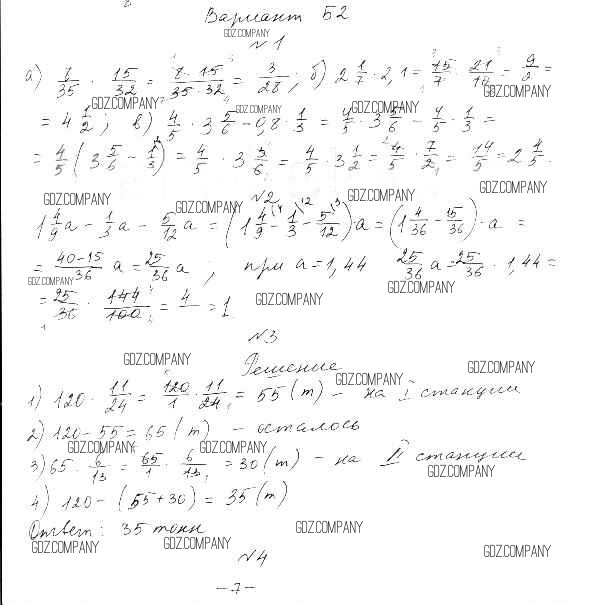 Вариант Б2
GDZ.COMPANY
№1
а) 8/35 · 15/32 = 8·15/35·32 = 3/28; б) 2 1/7 · 2,1 = 15/7 · 21/10 = 9/2 =
GDZ.COMPANY GDZ.COMPANY GDZ.COMPANY GDZ.COMPANY
= 4 1/2; в) 4/5 · 3 5/6 − 0,8 · 1/3 = 4/5 · 3 5/6 − 4/5 · 1/3 =
= 4/5 (3 5/6 − 1/3) = 4/5 · 3 3/6 = 4/5 · 3 1/2 = 4/5 · 7/2 = 14/5 = 2 4/5.
GDZ.COMPANY GDZ.COMPANY GDZ.COMPANY GDZ.COMPANY
№2
1 4/9 a − 1/3 a − 5/12 a = (1 4/9 − 1/3 − 5/12) · a = (1 4/36 − 15/36) · a =
= 40−15/36 a = 25/36 a; при a = 1,44 25/36 a = 25/36 · 1,44 =
GDZ.COMPANY GDZ.COMPANY
= 25/36 · 144/100 = 4/ = 1
GDZ.COMPANY
№3
Решение
GDZ.COMPANY GDZ.COMPANY GDZ.COMPANY
1) 120 · 11/24 = 120/1 · 11/24 = 55 (т) – на I станции
2) 120 − 55 = 65 (т) – осталось
GDZ.COMPANY GDZ.COMPANY
3) 65 · 6/13 = 65/1 · 6/13 = 30 (т) – на II станции
GDZ.COMPANY
4) 120 − (55 + 30) = 35 (т)
Ответ: 35 тонн
GDZ.COMPANY GDZ.COMPANY GDZ.COMPANY GDZ.COMPANY
№4
– 7 –